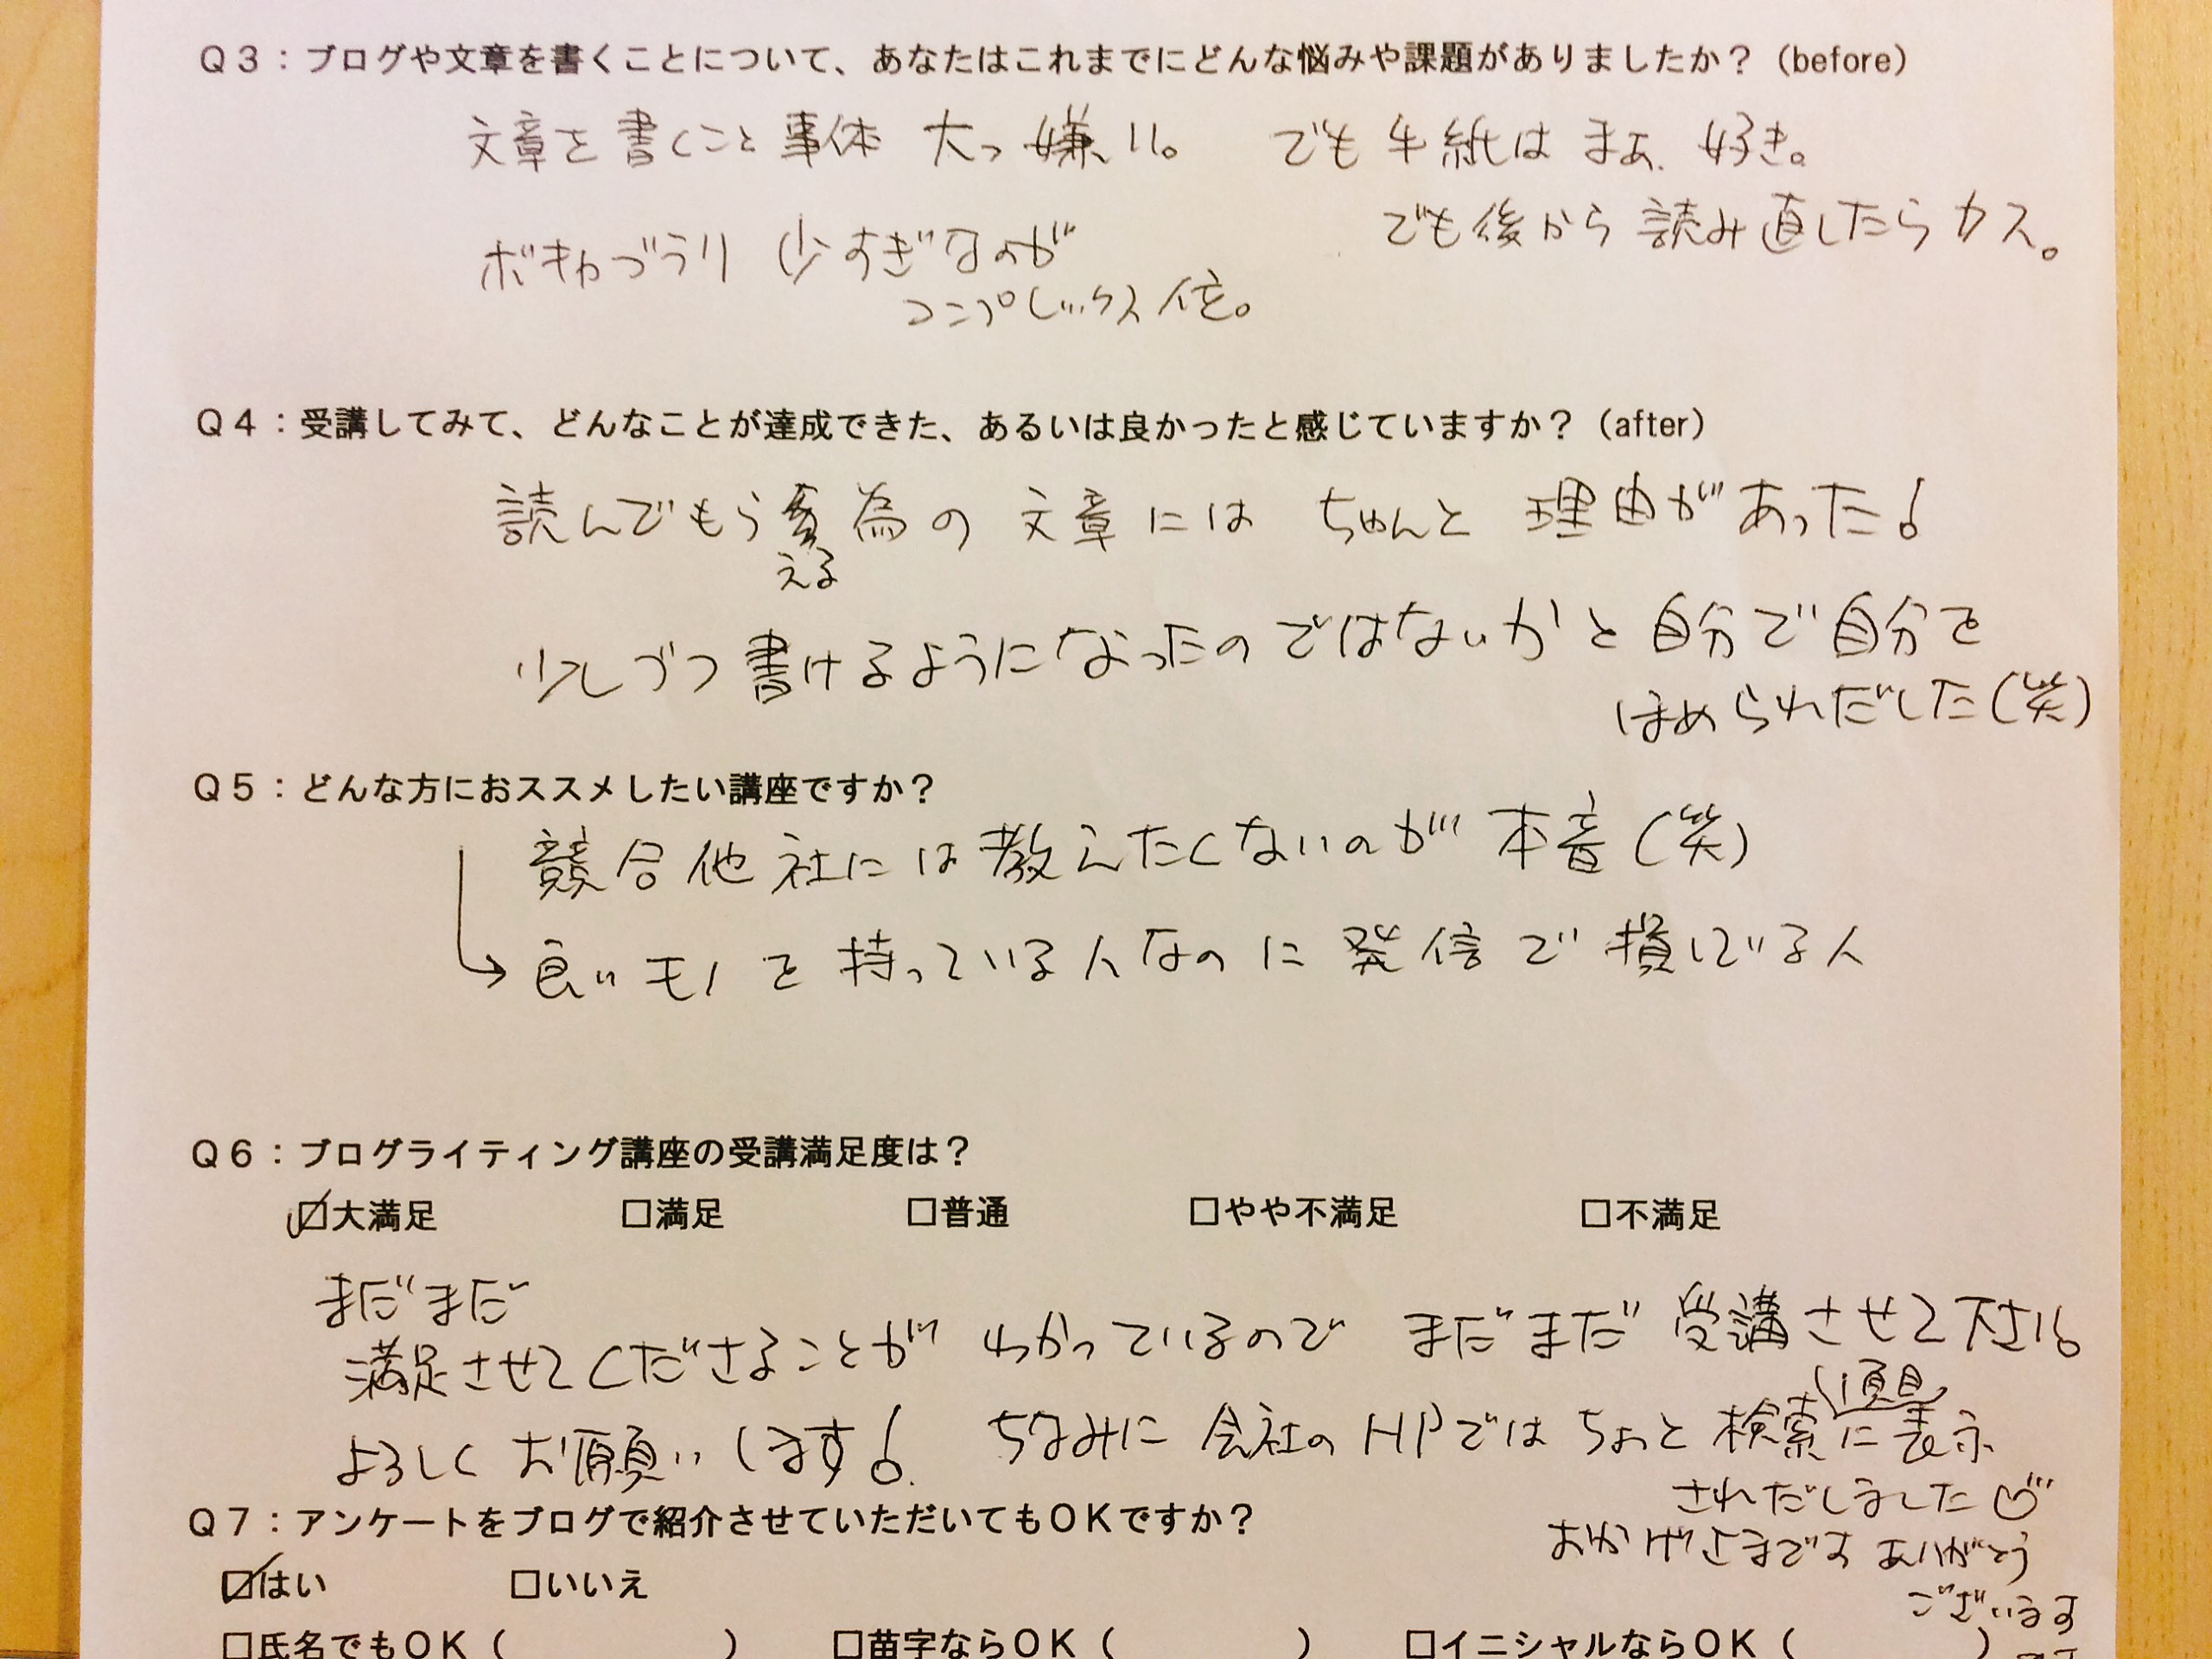 Q3：ブログや文章を書くことについて、あなたはこれまでにどんな悩みや課題がありましたか？（before）
文章を書くこと事体 大っ嫌い。 でも手紙はまぁ、好き。
でも後から読み直したらカス。
ボキャブラリ 少すぎなのが
コンプレックス位。
Q4：受講してみて、どんなことが達成できた、あるいは良かったと感じていますか？（after）
読んでもらう為の文章にはちゃんと理由があった！
える
少しづつ書けるようになったのではないかと自分で自分を
ほめられだした（笑）
Q5：どんな方におススメしたい講座ですか？
競合他社には教えたくないのが本音（笑）
→良いモノを持っている人なのに発信で損している人
Q6：ブログライティング講座の受講満足度は？
☑大満足 □満足 □普通 □やや不満足 □不満足
まだまだ
満足させてくださることがわかっているのでまだまだ受講させて下さい。
よろしくお願いします！ ちなみに会社のHPではちょっと検索1頁目に表示
されだしました
おかげさまです ありがとう
ございます
Q7：アンケートをブログで紹介させていただいてもOKですか？
☑はい □いいえ
□氏名でもOK（ ） □苗字ならOK（ ） □イニシャルならOK（ ）